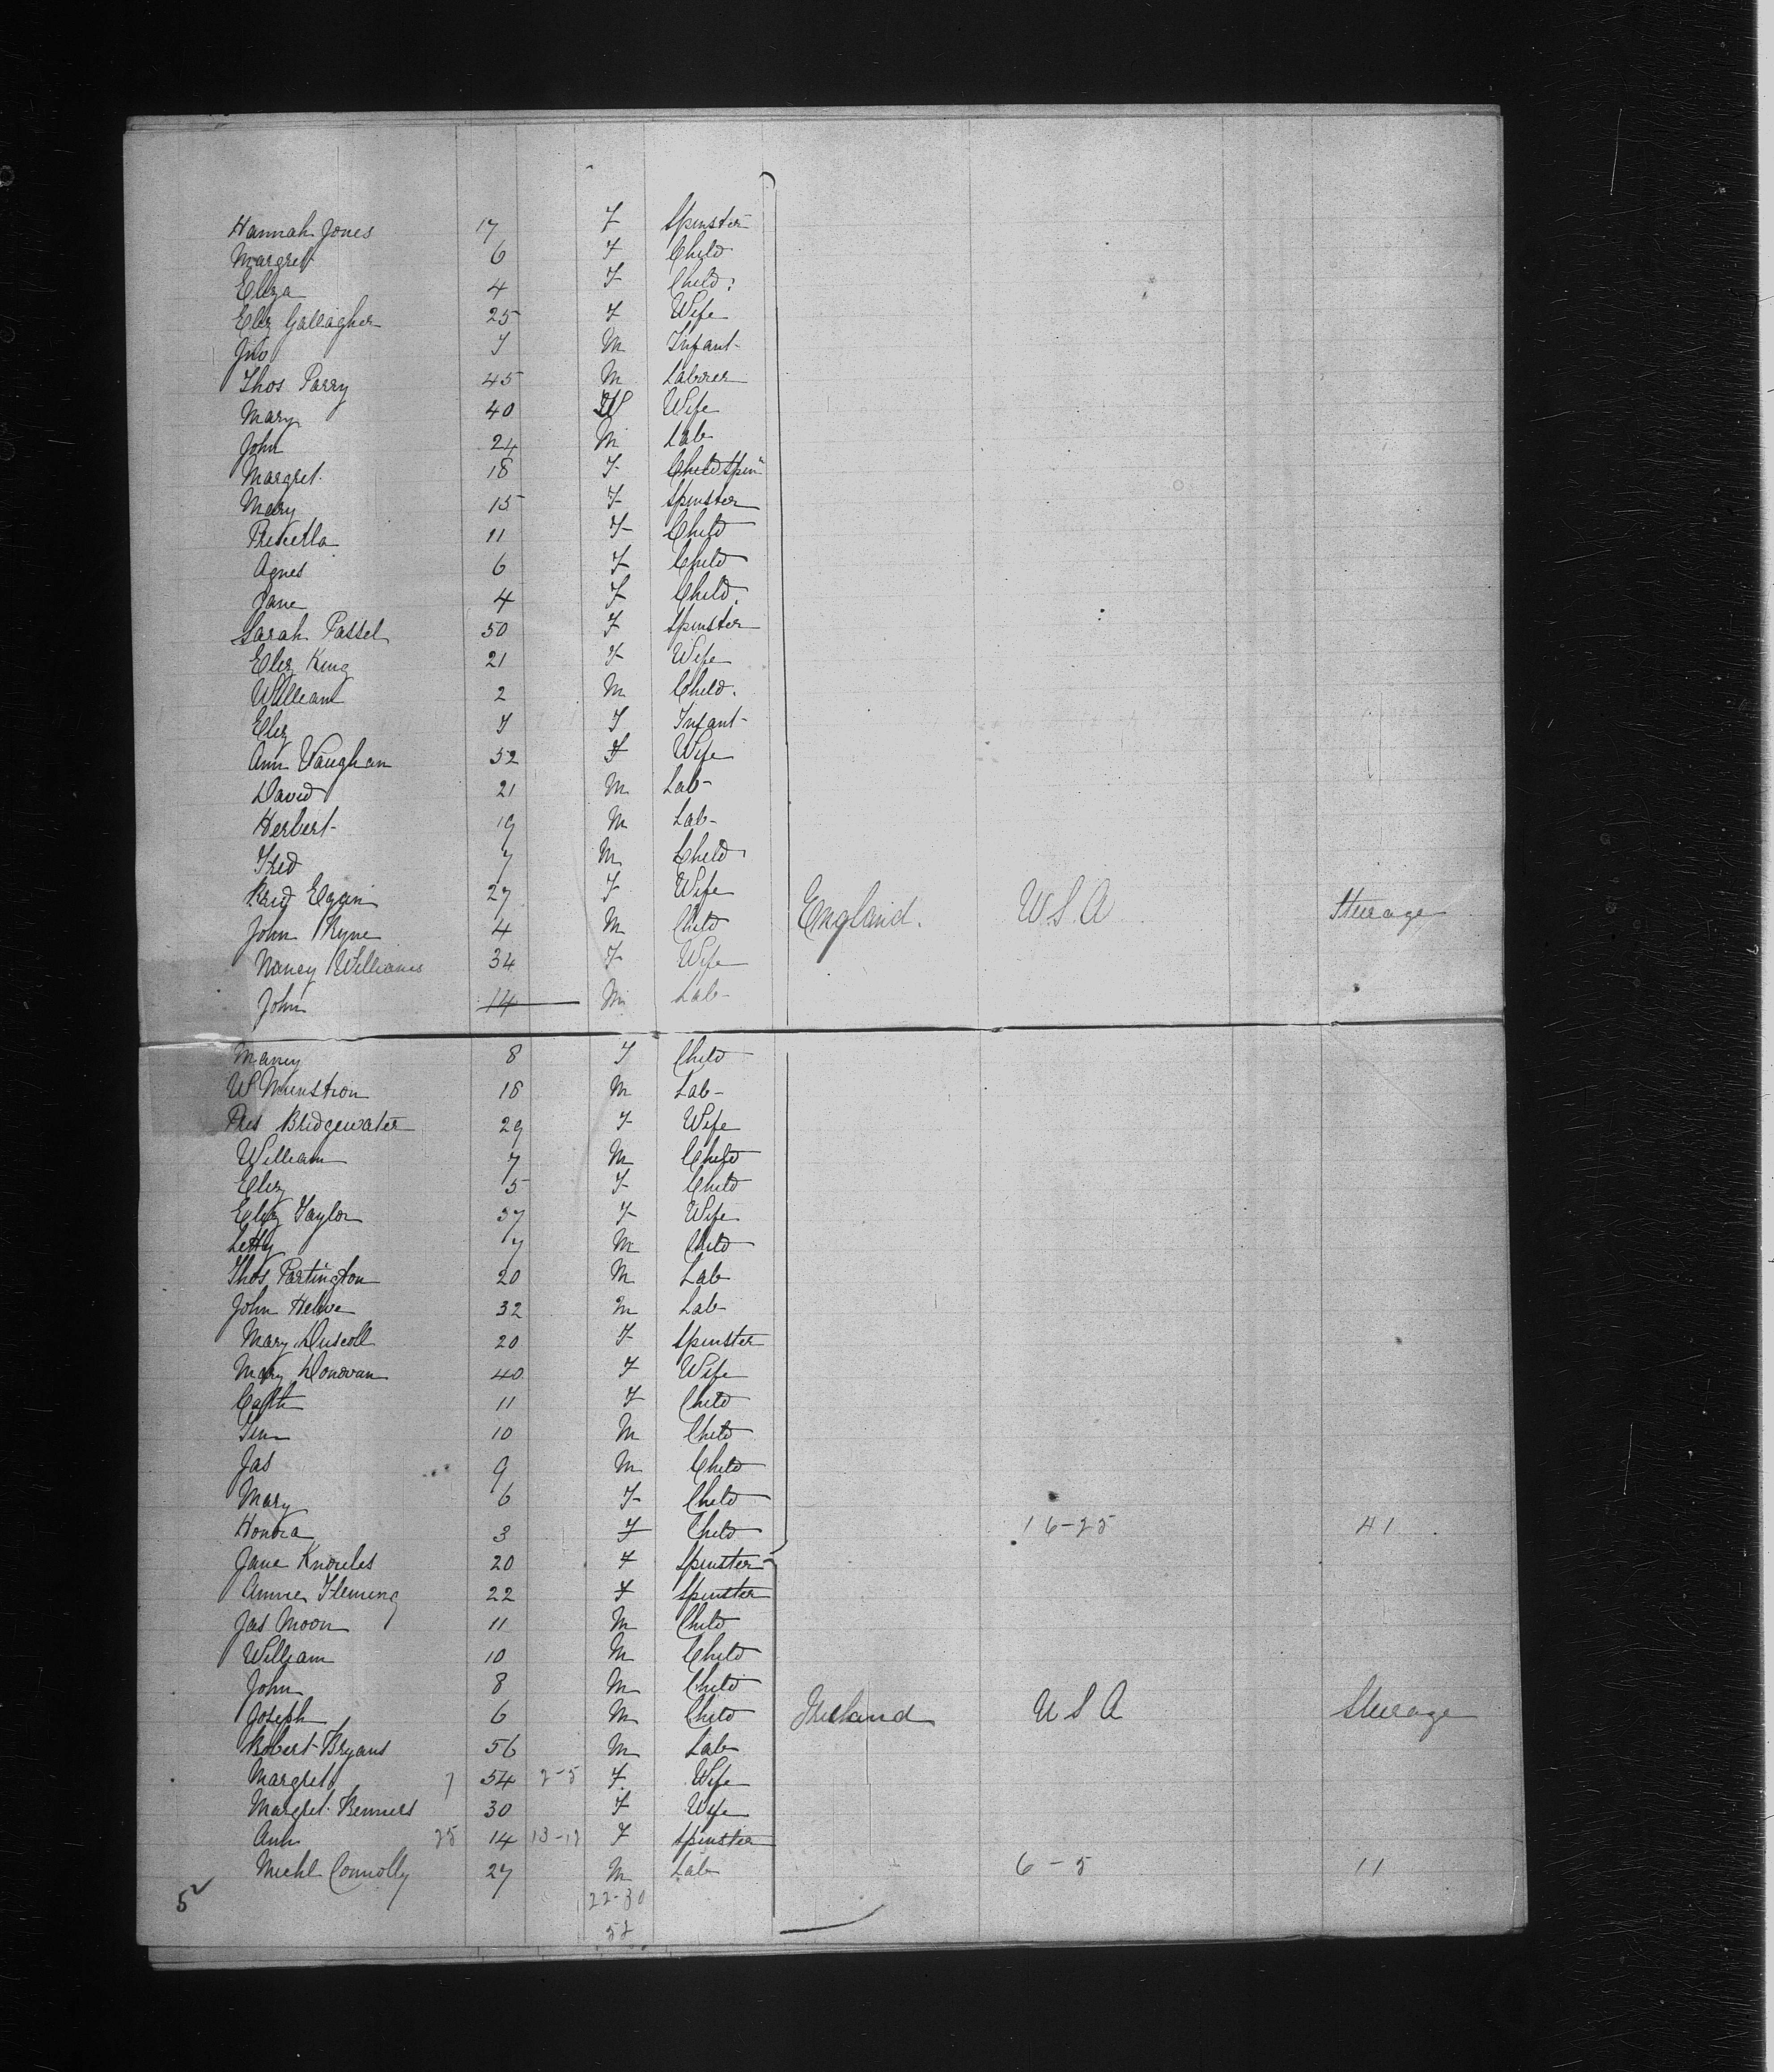 Hannah Jones 17 F Spinster
Margret 6 F Child
Eliza 4 F Child
Eliz Gallagher 25 F Wife
Jno M Infant
Thos Parry 45 M Laborer
Mary 40 Wife
John 24 M Lab
Margret 18 F Child Spin
Mary 15 F Spinster
Priscilla 11 F Child
Agnes 6 F Child
Jane 4 F Child
Sarah Passel 50 F Spinster
Eliz King 21 F Wife
William 2 M Child
Eliz F Infant
Ann Vaughan 52 F Wife
David 21 M Lab
Herbert 19 M Lab
Fred 7 M Child
Brid Eagin 27 F Wife
John Ryne 4 M Child England. U S A Steerage
Nancy Williams 34 F Wife
John 14 M Lab
Nancy 8 F Child
W Munstron 18 M Lab
Pris Bridgewater 29 F Wife
William 7 M Child
Eliz 5 F Child
Eliz Taylor 37 F Wife
Letty 7 M Child
Thos Partington 20 M Lab
John Helive 32 M Lab
Mary Driscoll 20 F Spinster
Mary Donovan 40 F Wife
Cath 11 F Child
Tim 10 M Child
Jas 9 M Child
Mary 6 F Child
Honora 3 F Child 16-25 41
Jane Knowles 20 F Spinster
Annie Fleming 22 F Spinster
Jas Moon 11 M Child
William 10 M Child
John 8 M Child
Joseph 6 M Child Ireland U S A Steerage
Robert Bryans 56 M Lab
Margret 7 54 2-5 F Wife
Margret 30 F Wife
Ann 25 14 13-12 F Spinster
Michl Connolly 27 M Lab 6-5 11
5 22-30
52